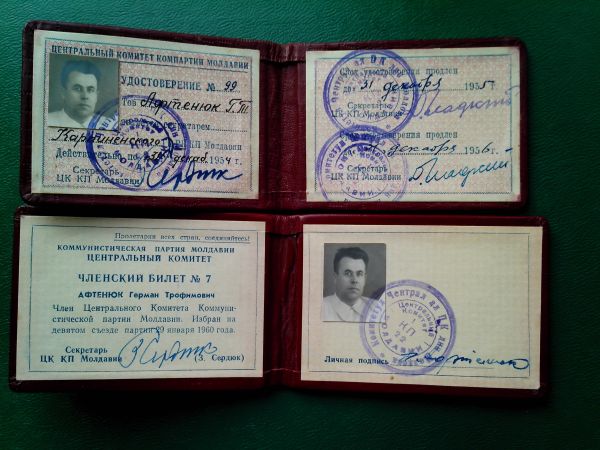 ЦЕНТРАЛЬНЫЙ КОМИТЕТ КОМПАРТИИ МОЛДАВИИ
УДОСТОВЕРЕНИЕ № 99
Тов. Афтенюк Г.Т.
секретарем
Каргиненского
КП Молдавии
Действительно по 31 декаб. 1954 г.
Секретарь
ЦК КП Молдавии
Срок удостоверения продлен
до 31 декабря 1955 г.
Секретарь
ЦК КП Молдавии
удостоверения продлен
декабря 1956 г.
Секретарь
ЦК КП Молдавии
Пролетарии всех стран, соединяйтесь!
КОММУНИСТИЧЕСКАЯ ПАРТИЯ МОЛДАВИИ
ЦЕНТРАЛЬНЫЙ КОМИТЕТ
ЧЛЕНСКИЙ БИЛЕТ № 7
АФТЕНЮК Герман Трофимович
Член Центрального Комитета Коммуни-
стической партии Молдавии. Избран на
девятом съезде партии 29 января 1960 года.
Секретарь
ЦК КП Молдавии
(З. Сердюк)
Центральный
Комитет
КП
Личная подпись